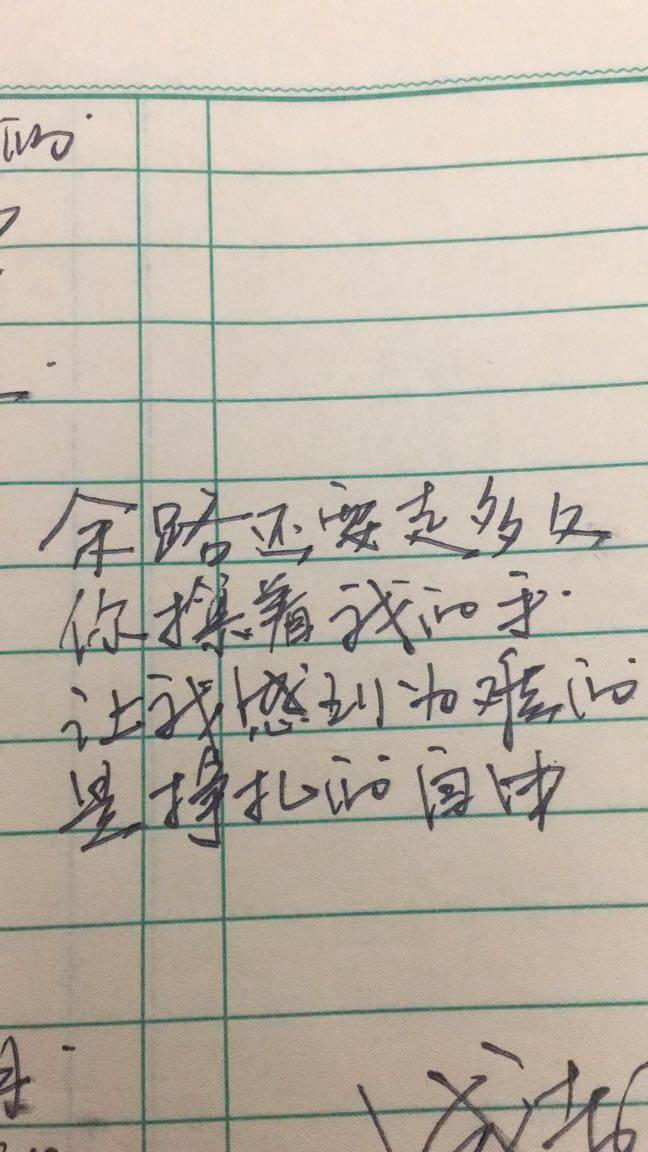 的
余路还要走多久
你攥着我的手
让我感到为难的
是挣扎的自由